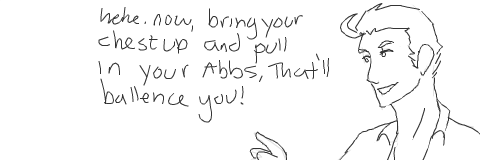 hehe. now, bring your
chest up and pull
in your Abbs, That'll
ballence you!